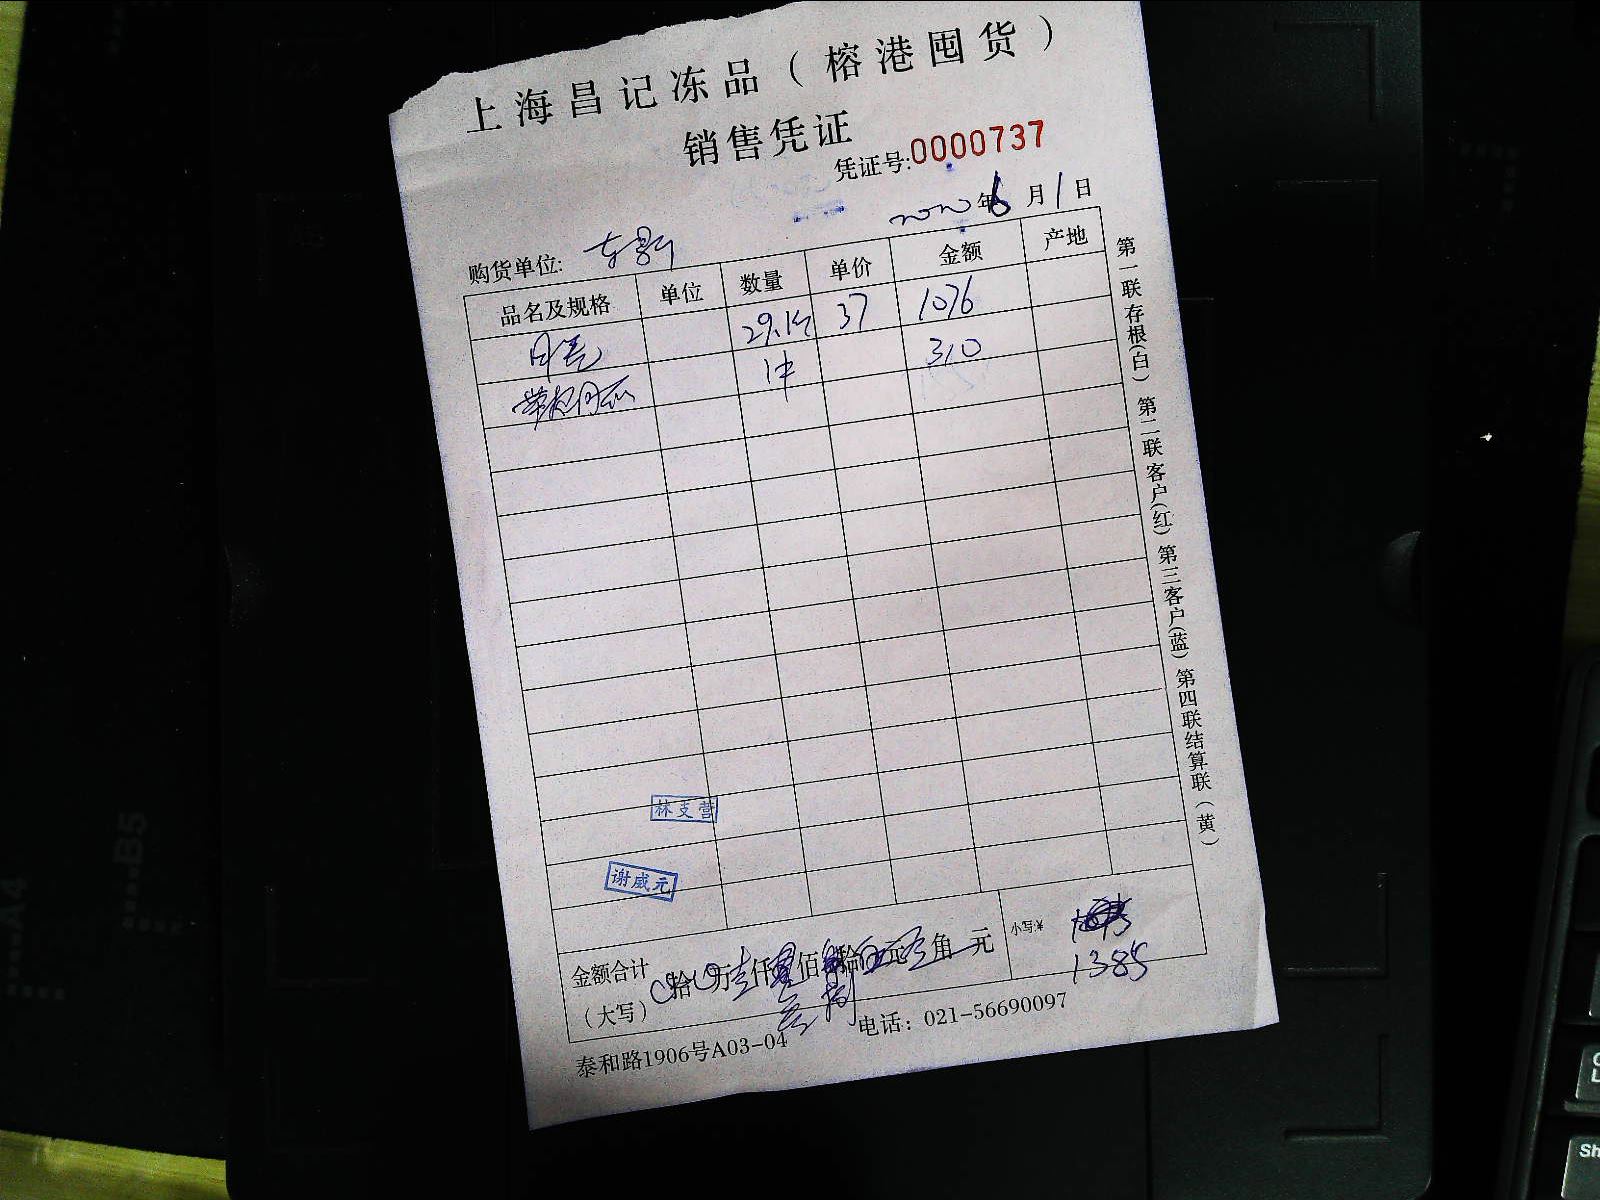 上海昌记冻品（榕港囤货）
销售凭证
凭证号:0000737
2020年6月1日
购货单位:
品名及规格 单位 数量 单价 金额 产地
29.1斤 37 1076
1件 310
林支营
谢威元
金额合计 拾 万 仟 佰 拾 元 角 元 小写:¥ 1385
（大写）
泰和路1906号A03-04 电话：021-56690097
第一联存根(白)第二联客户(红)第三客户(蓝)第四联结算联（黄）
A4
B5